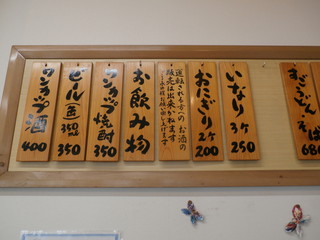 すごうどん・そば
680
いなり 3ケ
250
おにぎり 2ケ
200
運転される方へのお酒の
販売は出来かねます
お飲み物
ワンカップ焼酎
350
ビール(缶) 350ml
350
ワンカップ酒
400